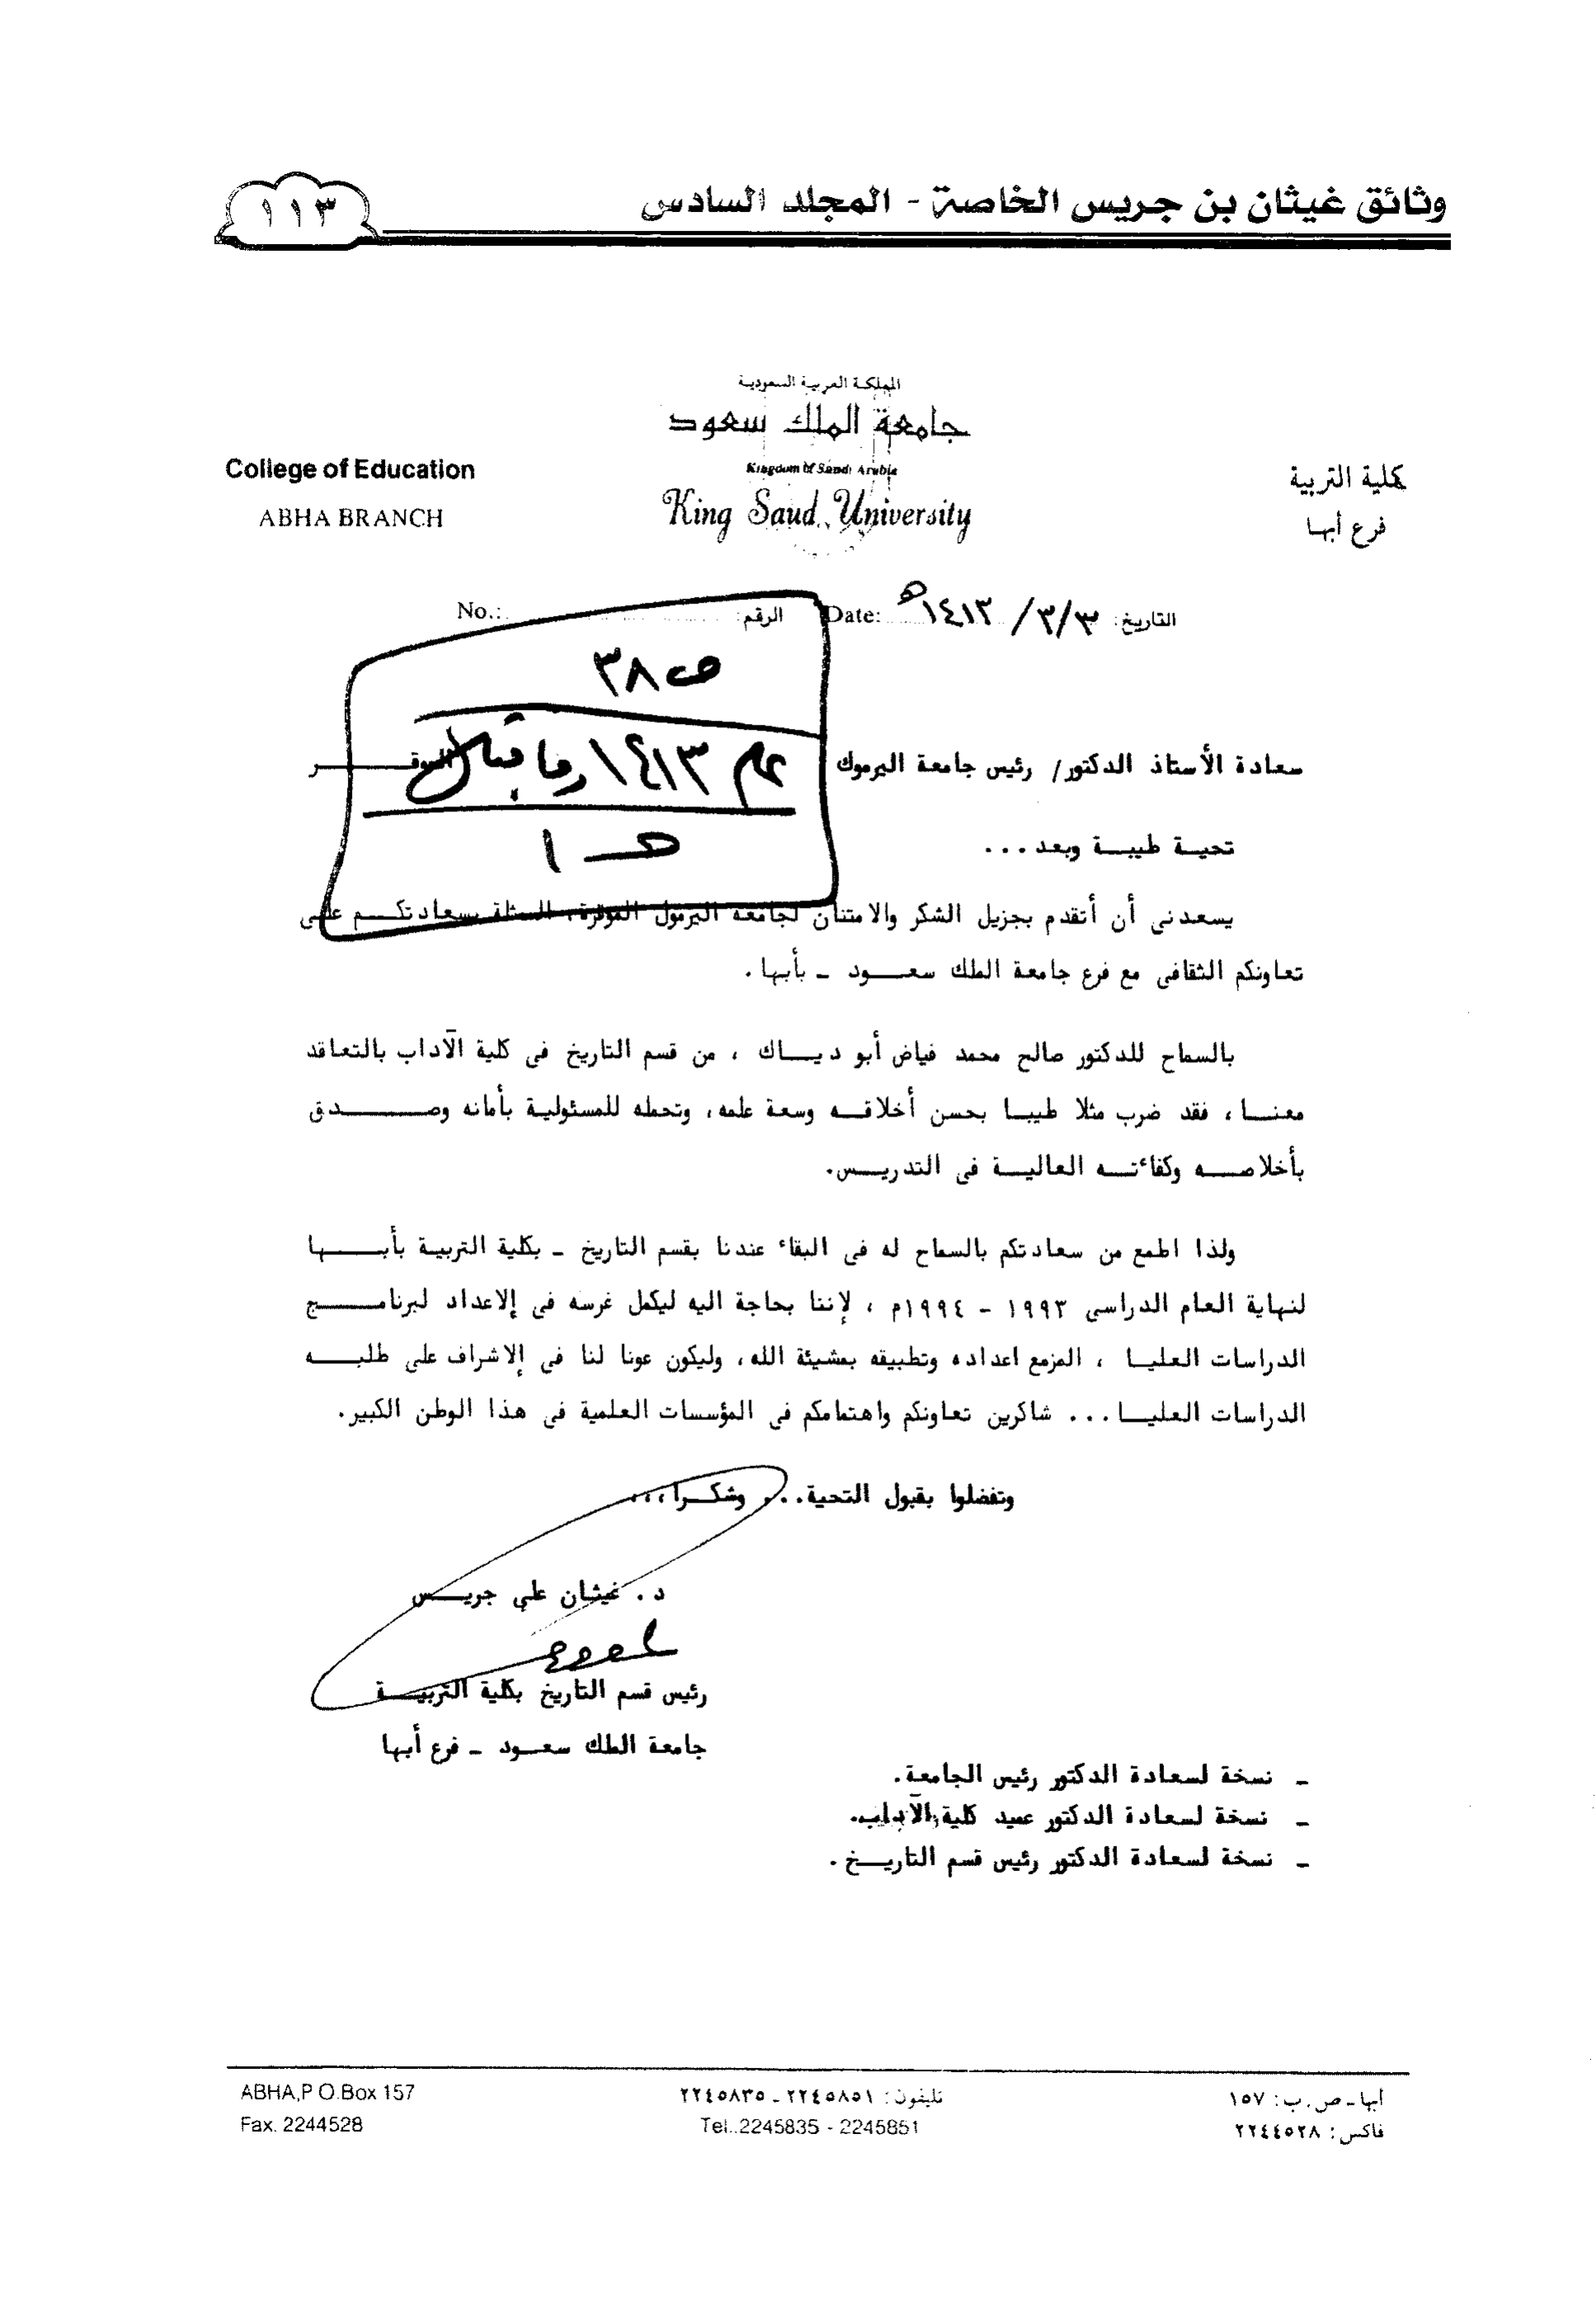 وثائق غيثان بن جريس الخاصة - المجلد السادس
١١٣
المملكة العربية السعودية
جامعة الملك سعود
Kingdom of Saudi Arabia
King Saud University
College of Education
ABHA BRANCH
كلية التربية
فرع أبها
التاريخ: ٣/٣/ ١٤١٣هـ Date:
الرقم: No.:
ص ٣٨
عام ١٤١٣ وما قبل
هـ ١
سعادة الأستاذ الدكتور/ رئيس جامعة اليرموك الموقــر
تحيـة طيبـة وبعد ...
يسعدنى أن أتقدم بجزيل الشكر والامتنان لجامعة اليرموك الموقرة، الممثلة بسعادتكـم علـى
تعاونكم الثقافى مع فرع جامعة الملك سعــود ـ بأبها .
بالسماح للدكتور صالح محمد فياض أبو ديــاك ، من قسم التاريخ فى كلية الآداب بالتعاقد
معنــا ، فقد ضرب مثلا طيبـا بحسن أخلاقـه وسعة علمه، وتحمله للمسئولية بأمانه وصــدق
بأخلاصــه وكفاءتـه العاليـة فى التدريــس.
ولذا اطمع من سعادتكم بالسماح له فى البقاء عندنا بقسم التاريخ ـ بكلية التربيـة بأبــها
لنهاية العام الدراسى ١٩٩٣ - ١٩٩٤م ، لإننا بحاجة اليه ليكمل غرسه فى إلاعداد لبرنامــج
الدراسات العليـا ، المزمع اعداده وتطبيقه بمشيئة الله، وليكون عونا لنا فى إلاشراف على طلبــه
الدراسات العليــا ... شاكرين تعاونكم واهتمامكم فى المؤسسات العلمية فى هذا الوطن الكبير.
وتفضلوا بقبول التحية... وشكـرا،،،
د . غيثـان على جريــس
رئيس قسم التاريخ بكلية التربيــة
جامعة الملك سعــود ـ فرع أبها
ـ نسخة لسعادة الدكتور رئيس الجامعة.
ـ نسخة لسعادة الدكتور عميد كلية الآداب.
ـ نسخة لسعادة الدكتور رئيس قسم التاريــخ .
أبها ـ ص . ب : ١٥٧
فاكس : ٢٢٤٤٥٢٨
تليفون : ٢٢٤٥٨٥١ ـ ٢٢٤٥٨٣٥
Tel..2245835 - 2245851
ABHA,P O.Box 157
Fax. 2244528